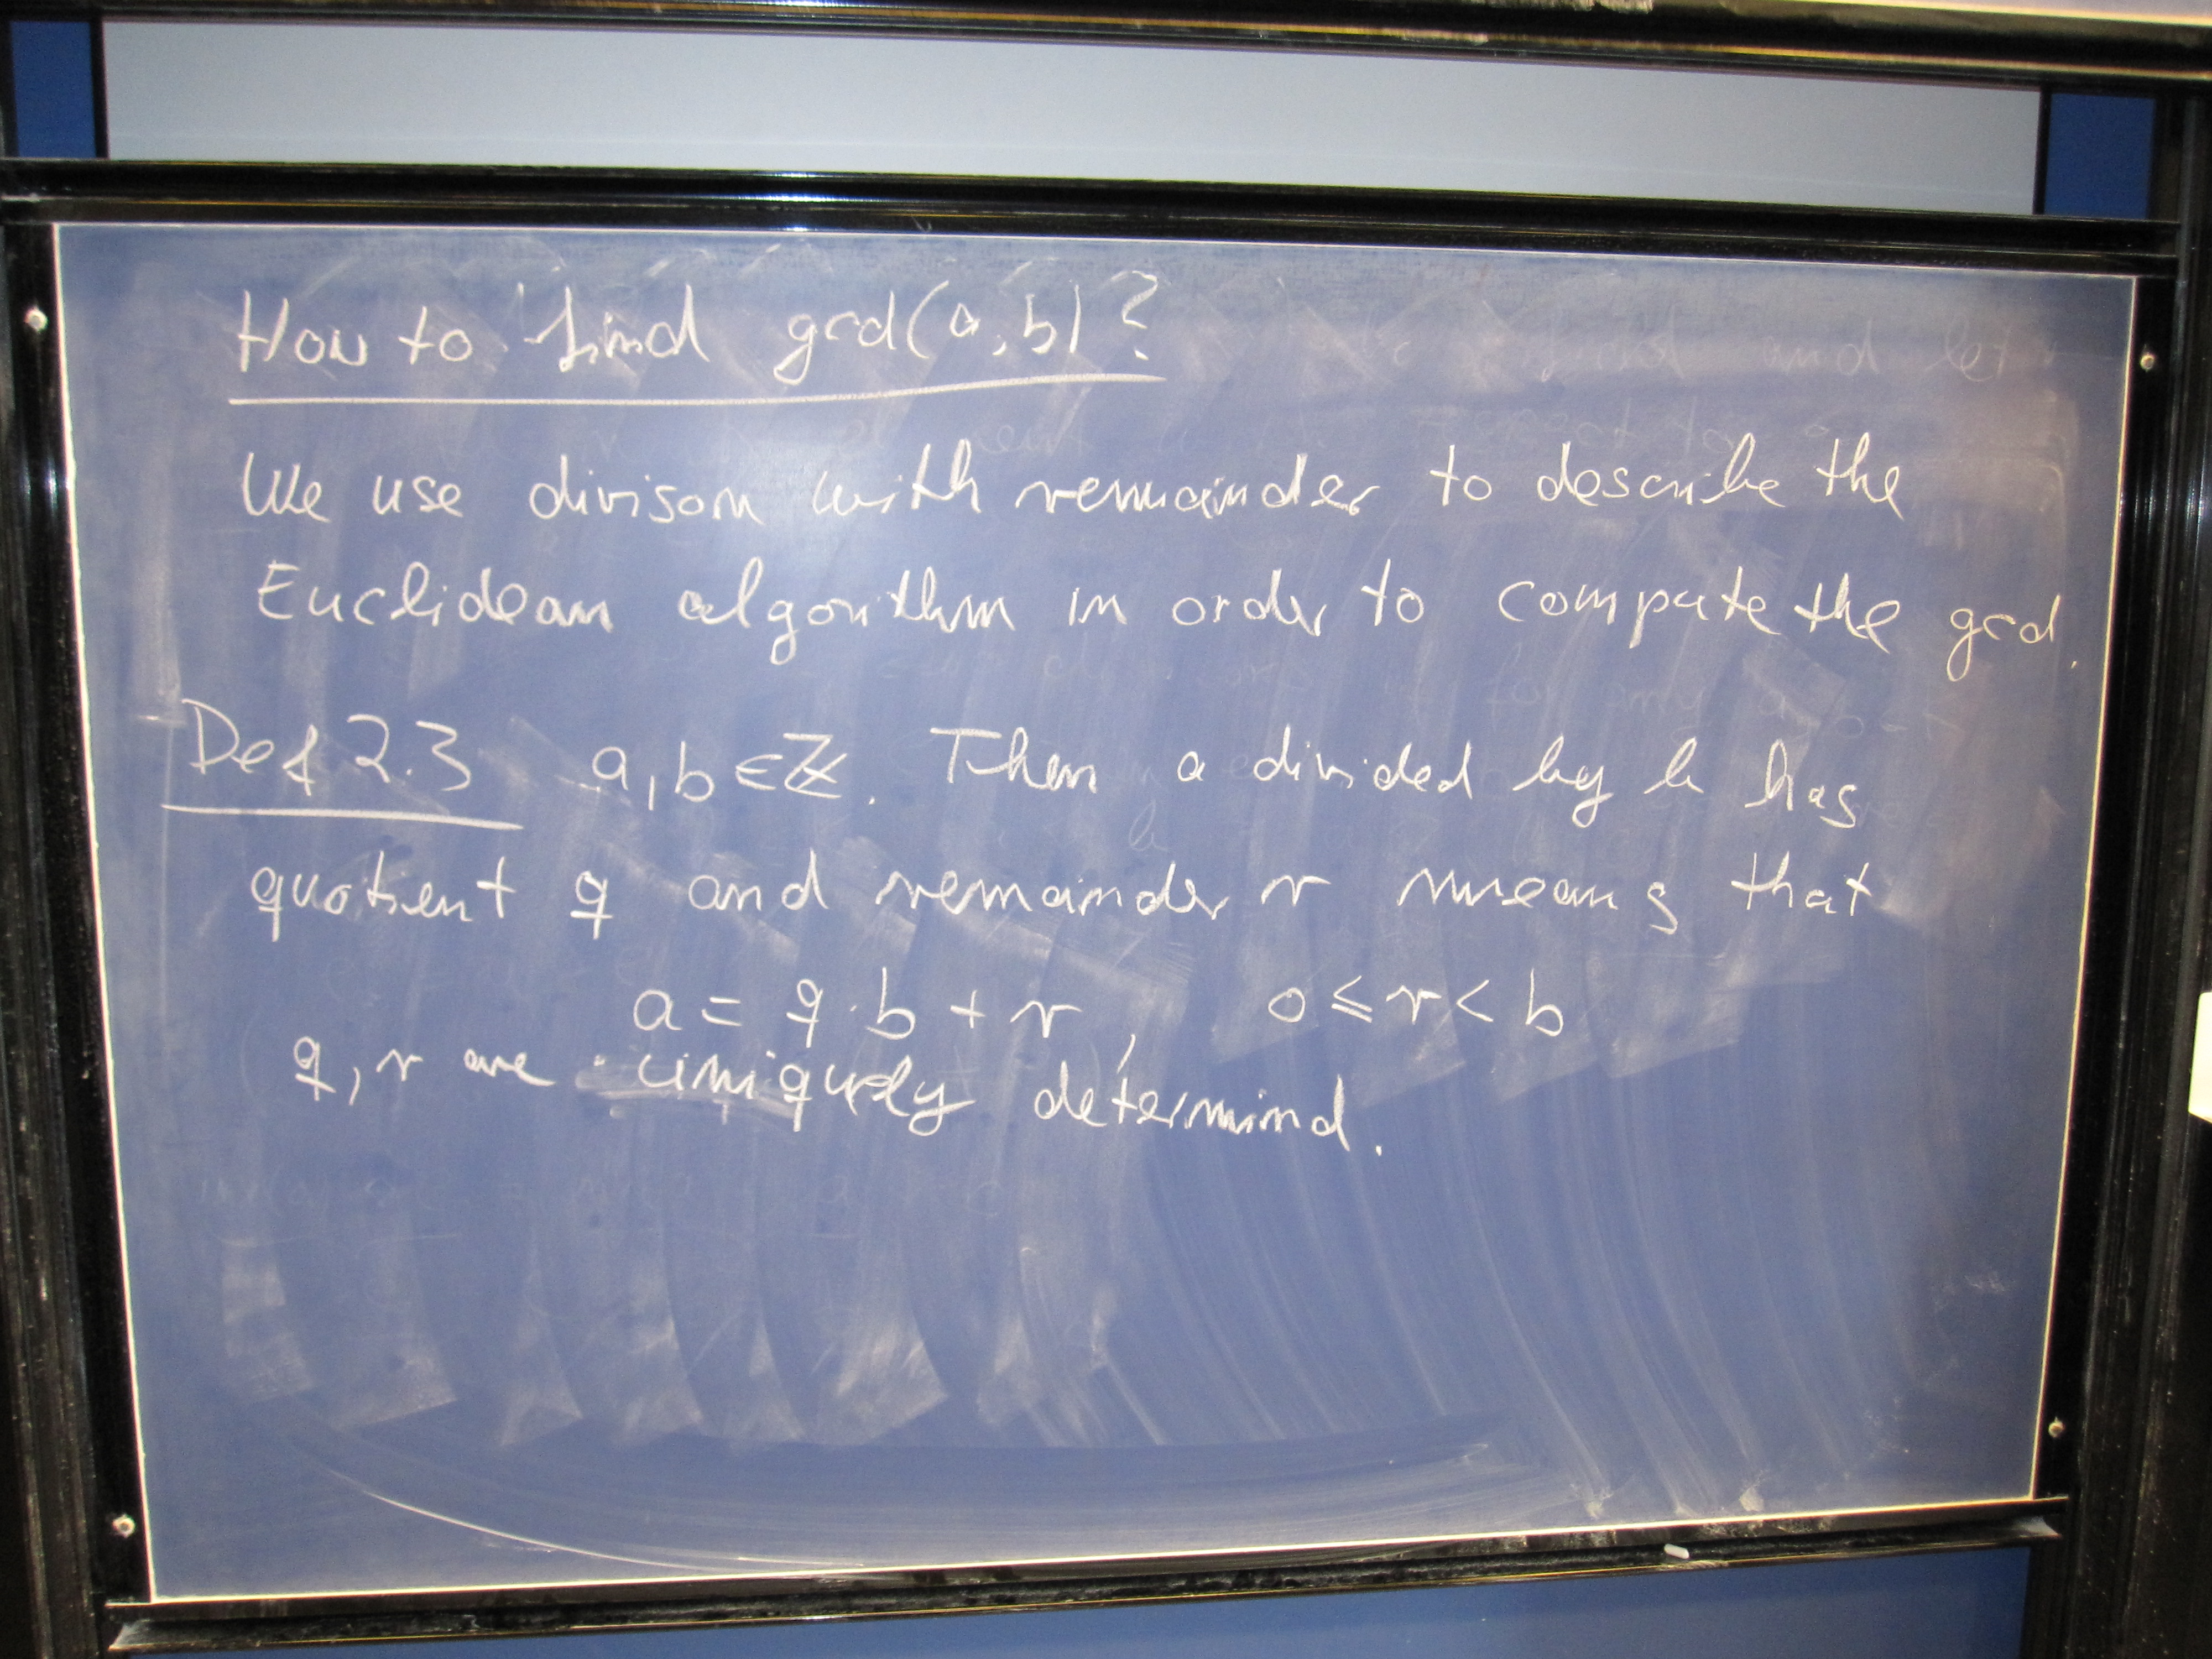 How to find gcd(a,b)?
We use divison with remainder to describe the
Euclidean algorithm in order to compute the gcd.
Def 2.3 a,b ∈ ℤ. Then a divided by b has
quotient q and remainder r means that
a = q·b + r, 0 ≤ r < b
q, r are uniquely determind.